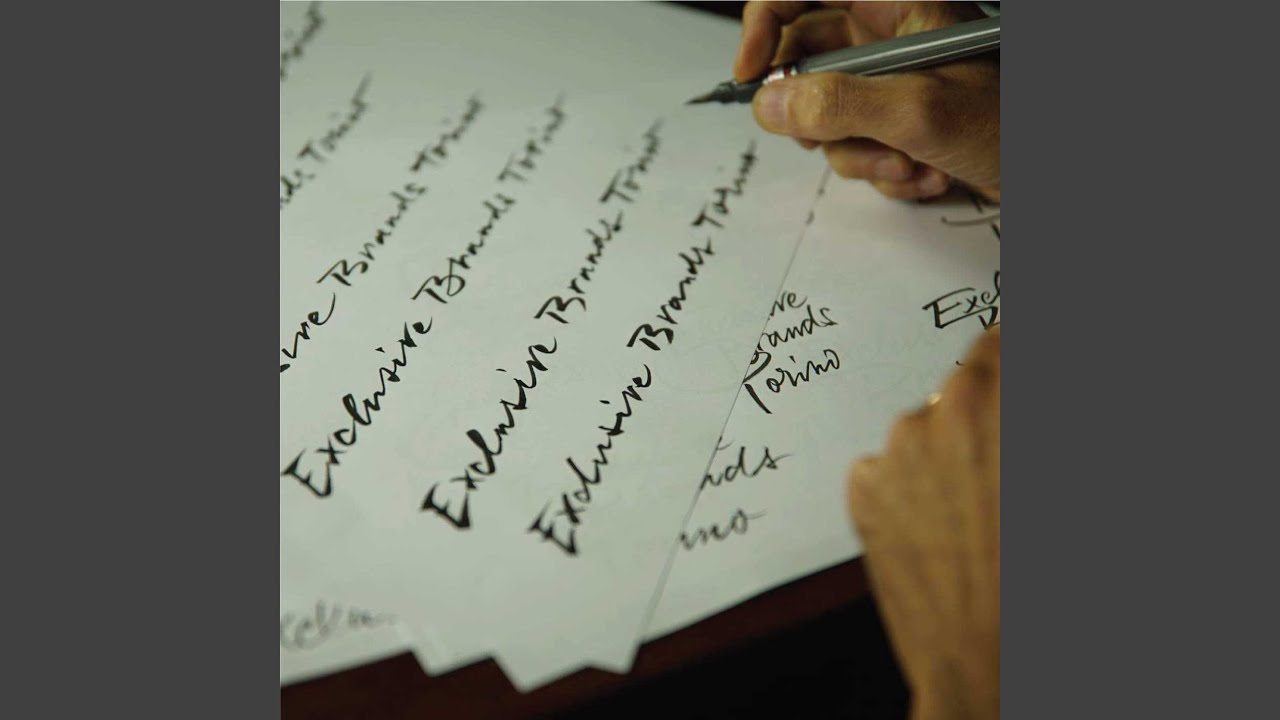 Torino
nds Torino
sive Brands Torino
Exclusive Brands Torino
Exclusive Brands Torino
Exclusive Brands Torino
ive
Brands
Torino
nds
ino
Excl